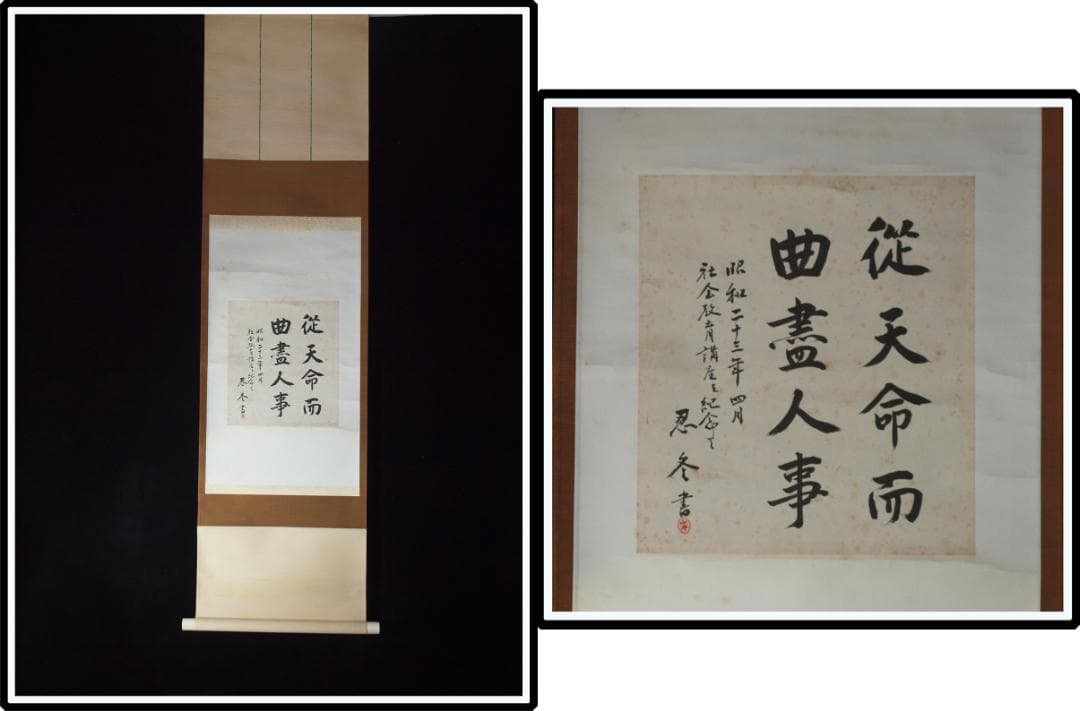 從天命而
曲盡人事
昭和二十三年四月
社会教育講座之紀念
忍冬書
從天命而
曲盡人事
昭和二十三年四月
社会教育講座之紀念
忍冬書